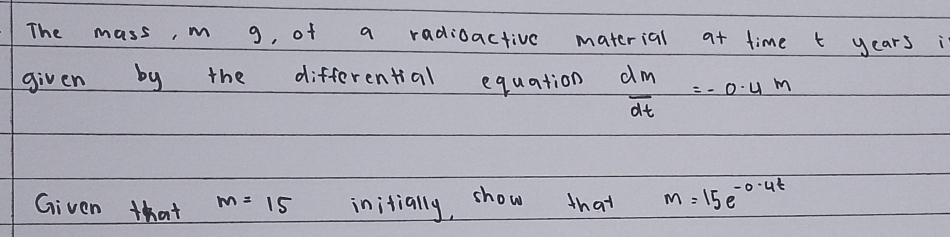 The mass, m g, of a radioactive material at time t years i
given by the differential equation dm/dt = - 0.4 m
Given that m = 15 initially, show that m = 15e^-0.4t